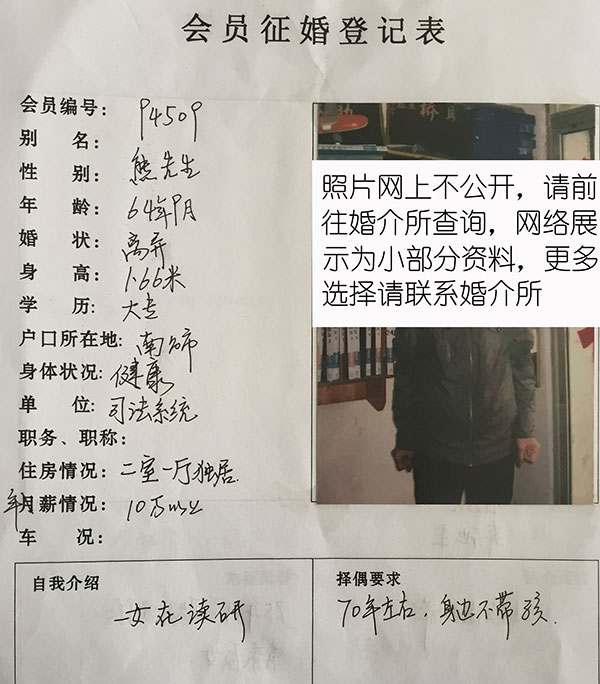 会员征婚登记表
会员编号: 94509
别 名:
性 别: 熊先生
年 龄: 64年9月
婚 状: 离异
身 高: 1.66米
学 历: 大专
户口所在地: 南市
身体状况: 健康
单 位: 司法系统
职务、职称:
住房情况: 二室一厅独居
年月薪情况: 10万以上
车 况:
照片网上不公开，请前
往婚介所查询，网络展
示为小部分资料，更多
选择请联系婚介所
自我介绍
一女在读研
择偶要求
70年左右，身边不带孩.